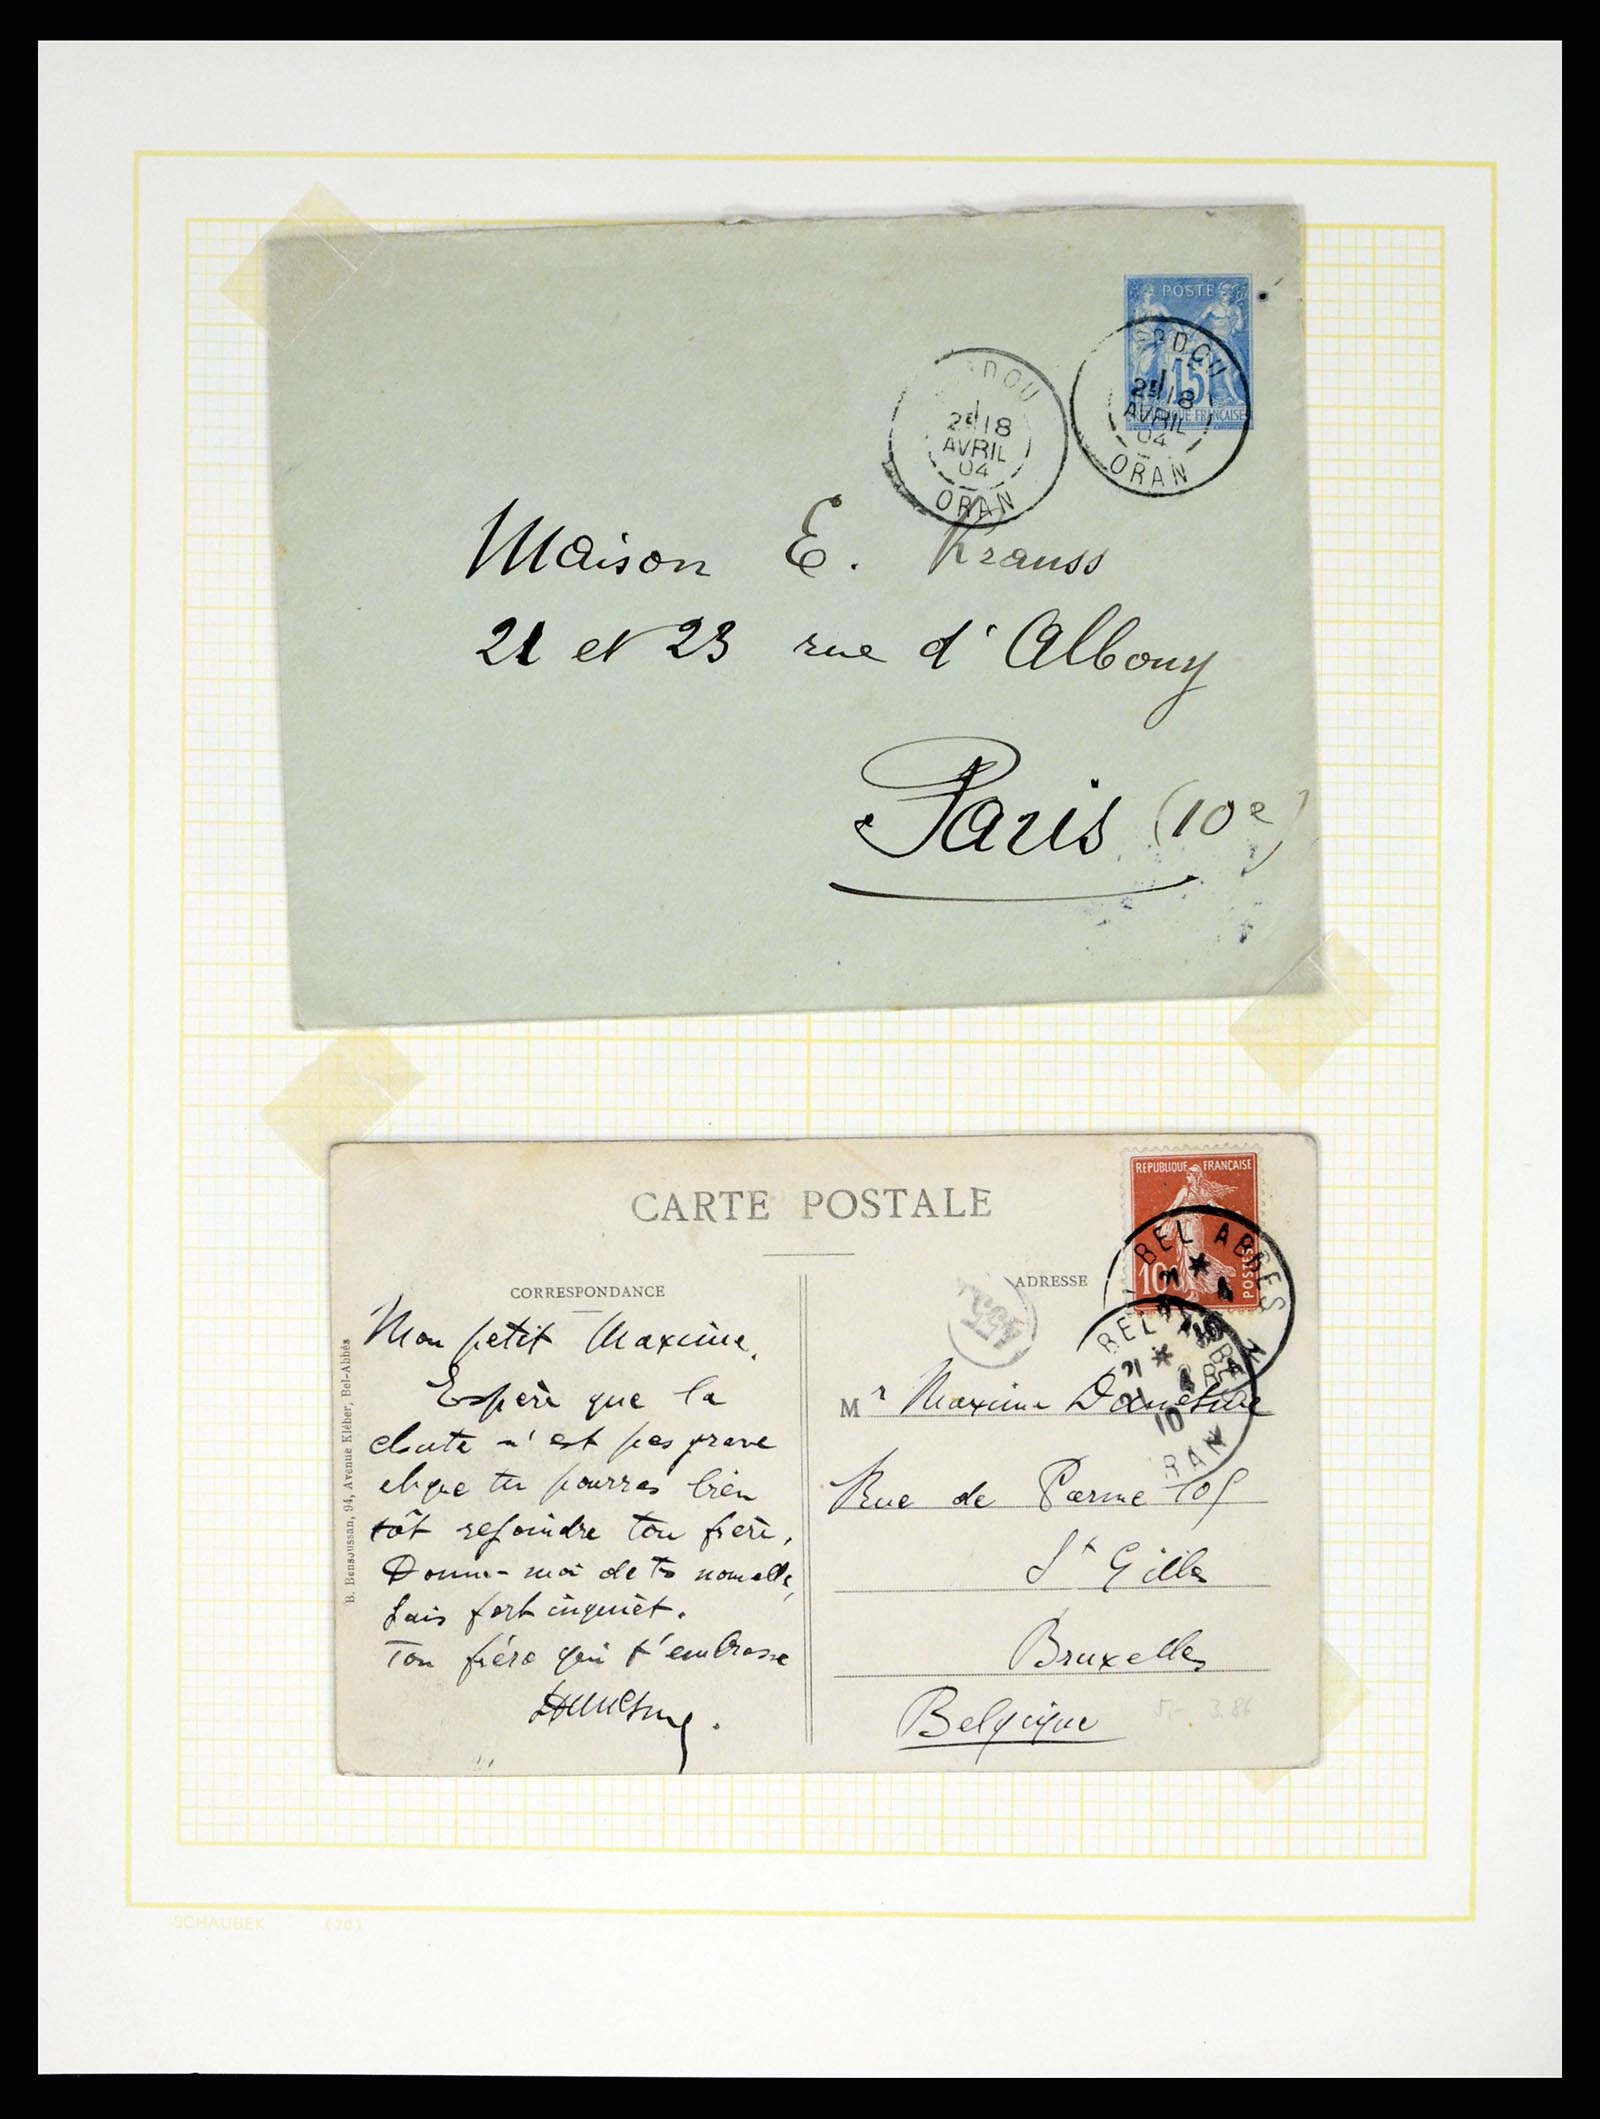 POSTE
15
RÉPUBLIQUE FRANÇAISE
DOU
2E 18
AVRIL
04
ORAN
2E 18
AVRIL
04
ORAN
Maison E. Krauss
21 et 23 rue d'Albouy
Paris (10e)
CARTE POSTALE
REPUBLIQUE FRANÇAISE
10c
POSTES
BEL ABBES
BEL ABBES
10
ORAN
CORRESPONDANCE
ADRESSE
B. Bensoussan, 94, Avenue Kléber, Bel-Abbès
Mon petit Maxime,
Espère que la
chute n'est pas grave
et que tu pourras bien
tôt rejoindre ton frère.
Donne-moi de tes nouvelles,
suis fort inquiet.
Ton frère qui t'embrasse
Mr Maxime
Rue de Parme 105
St Gilles
Bruxelles
Belgique
5.- 3.86
SCHAUBEK (70)